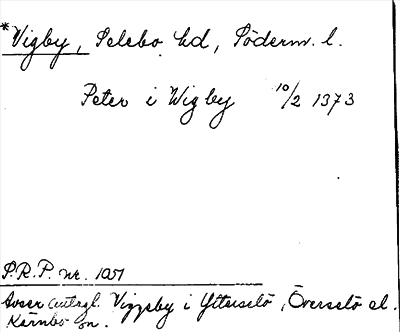 *Vigby, Selebo hd, Söderm. l.
Peter i Wigby 10/2 1373
S.R.P. nr. 1051
Avser antagl. Viggeby i Ytterselö, Överselö el.
Kärnbo sn.